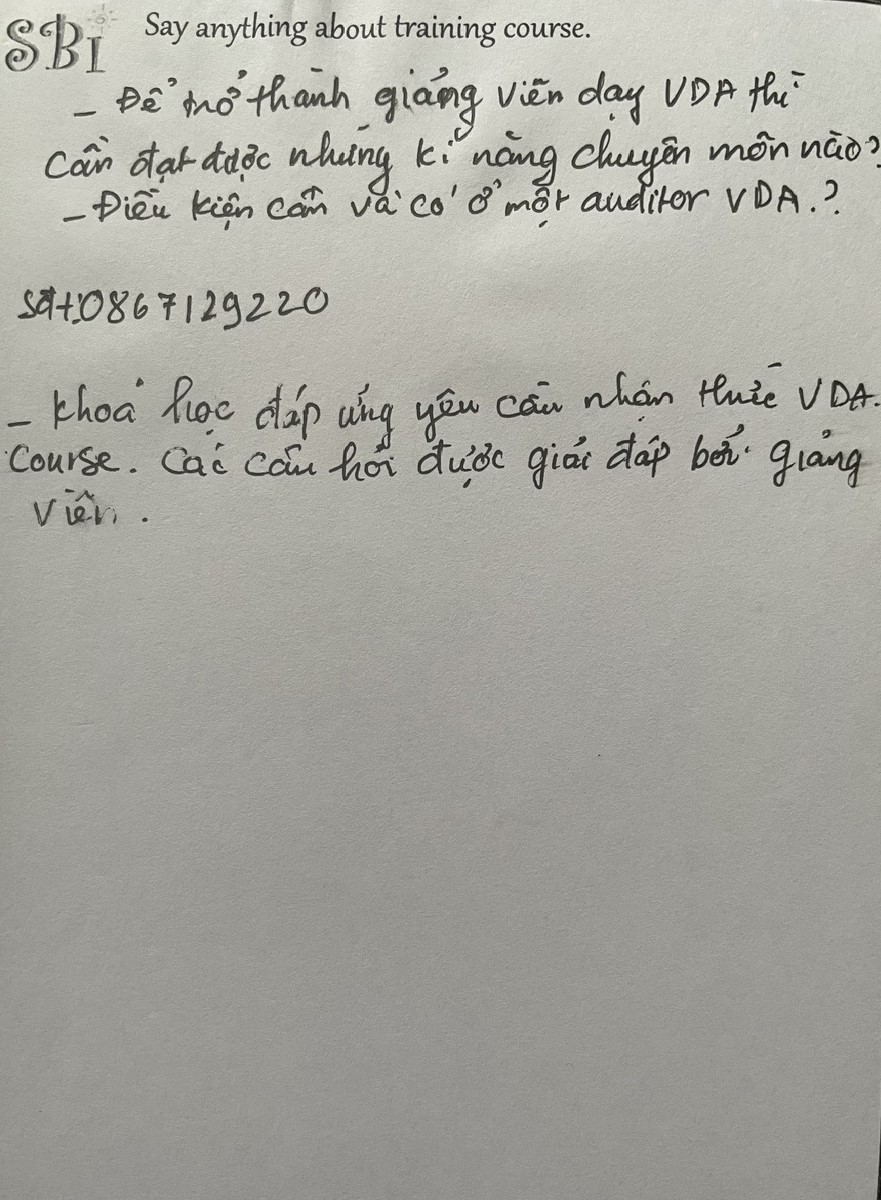 SBI Say anything about training course.
- Để trở thành giảng viên dạy VDA thì
cần đạt được những kĩ năng chuyên môn nào?
- Điều kiện cần và có ở một auditor VDA.?
sđt:0867129220
- khoá học đáp ứng yêu cầu nhận thức VDA.
Course. Các câu hỏi được giải đáp bởi giảng
viên.